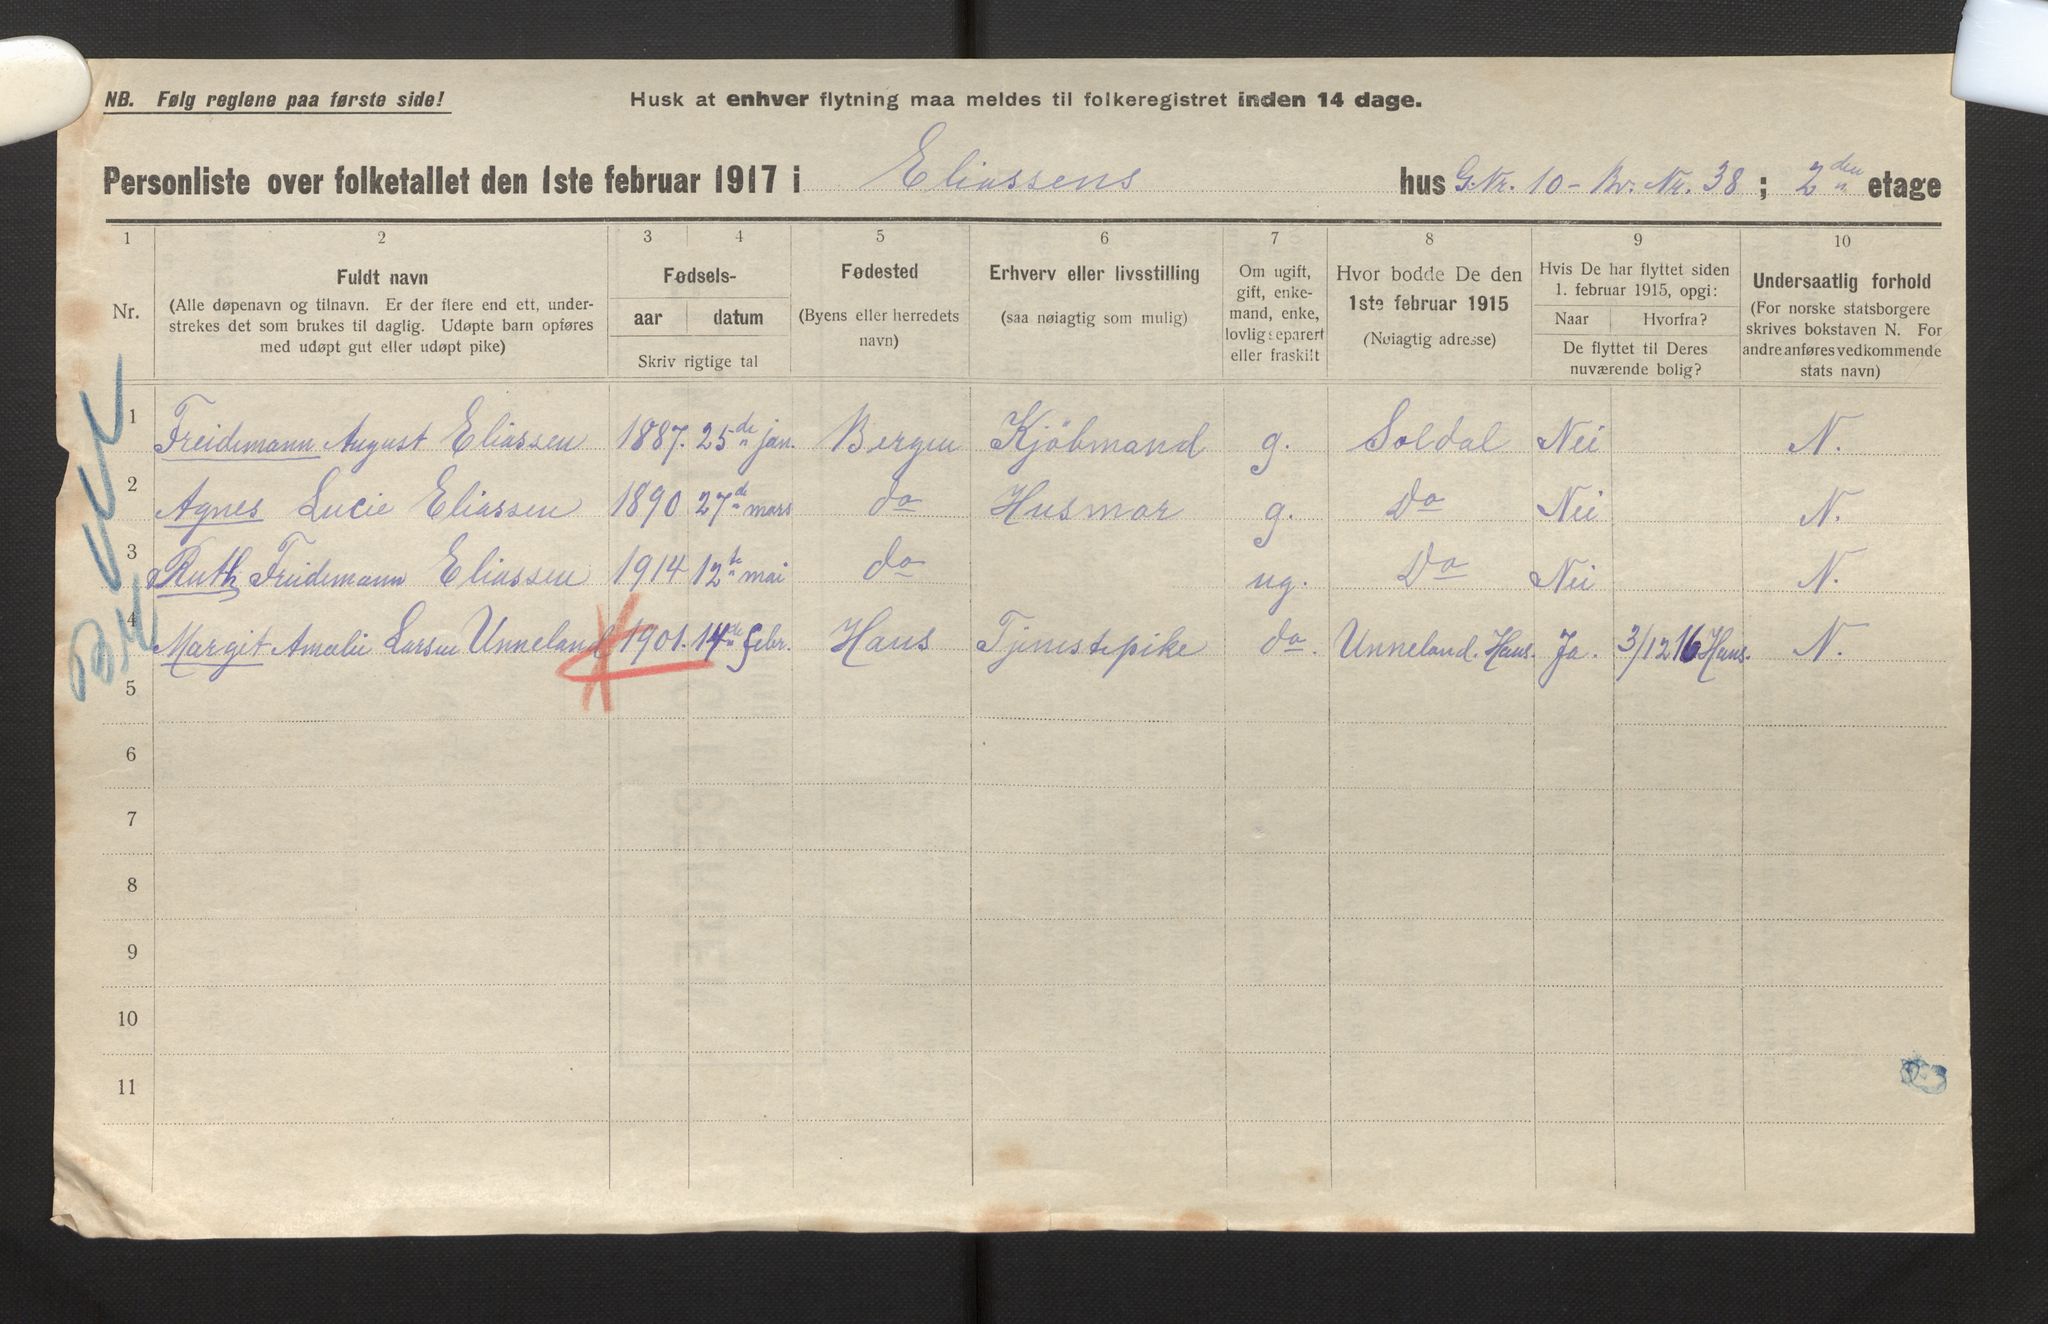 NB. Følg reglene paa første side!
Husk at enhver flytning maa meldes til folkeregistret inden 14 dage.
Personliste over folketallet den 1ste februar 1917 i Eliassens hus G. Nr. 10 - Br. Nr. 38 ; 2den etage
1 2 3 4 5 6 7 8 9 10
Nr.
Fuldt navn
(Alle døpenavn og tilnavn. Er der flere end ett, under-
strekes det som brukes til daglig. Udøpte barn opføres
med udøpt gut eller udøpt pike)
Fødsels-
aar datum
Skriv rigtige tal
Fødested
(Byens eller herredets
navn)
Erhverv eller livsstilling
(saa nøiagtig som mulig)
Om ugift,
gift, enke-
mand, enke,
lovlig separert
eller fraskilt
Hvor bodde De den
1ste februar 1915
(Nøiagtig adresse)
Hvis De har flyttet siden
1. februar 1915, opgi:
Naar Hvorfra?
De flyttet til Deres
nuværende bolig?
Undersaatlig forhold
(For norske statsborgere
skrives bokstaven N. For
andre anføres vedkommende
stats navn)
1 Freidemann August Eliassen 1887. 25de jan. Bergen Kjöbmand g. Soldal Nei N.
2 Agnes Lucie Eliassen 1890 27de mars do Husmor g. Do Nei N.
3 Ruth Freidemann Eliassen 1914 12te mai do ug. Do Nei N.
4 Margit Amalie Larsen Unneland 1901. 14de febr. Haus Tjenestepike do. Unneland. Haus. Ja. 3/12 16 Haus. N.
5
6
7
8
9
10
11